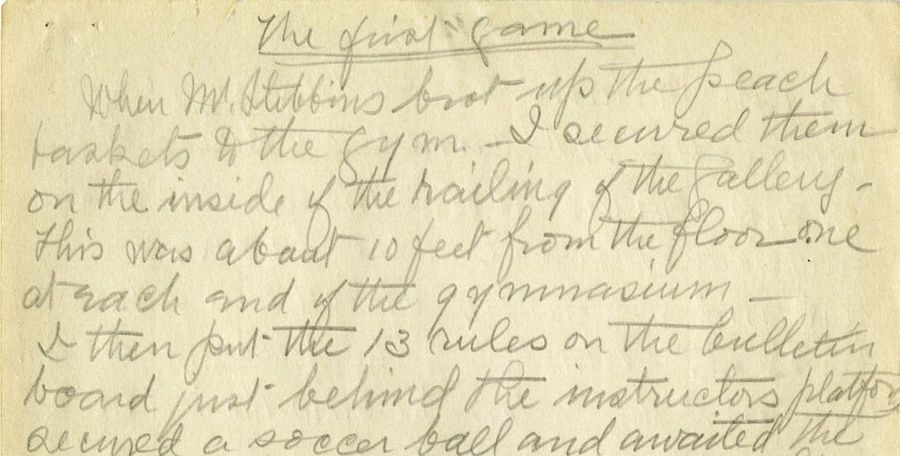 The first game
When Mr. Stebbins brot up the peach
baskets to the gym - I secured them
on the inside of the railing of the gallery -
This was about 10 feet from the floor one
at each end of the gymnasium -
I then put the 13 rules on the bulletin
board just behind the instructors platform
secured a soccer ball and awaited the